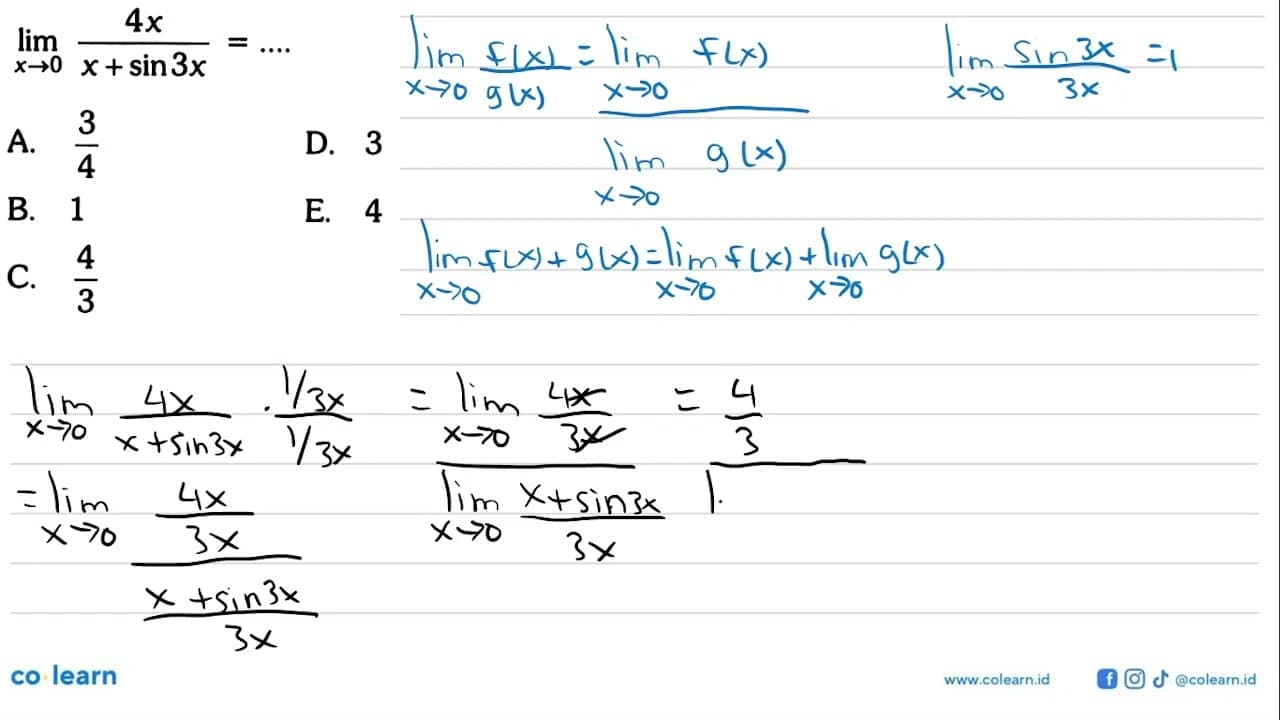 lim x→0 4x / (x + sin 3x) = ....
A. 3/4
B. 1
C. 4/3
D. 3
E. 4
lim x→0 f(x)/g(x) = lim x→0 f(x) / lim x→0 g(x)
lim x→0 sin 3x / 3x = 1
lim x→0 f(x) + g(x) = lim x→0 f(x) + lim x→0 g(x)
lim x→0 4x / (x + sin 3x) . (1/3x) / (1/3x)
= lim x→0 (4x / 3x) / ((x + sin 3x) / 3x)
= lim x→0 (4x / 3x) / lim x→0 ((x + sin 3x) / 3x)
= 4/3
co learn
www.colearn.id
@colearn.id